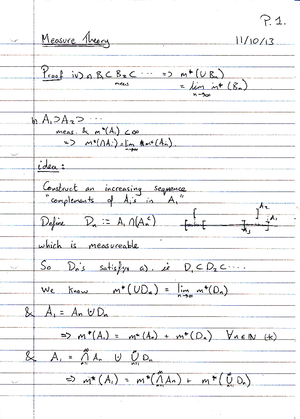 P.1.
Measure Theory 11/10/13
Proof iv) a B₁ ⊂ B₂ ⊂ ... ⇒ m*(∪Bₙ)
meas = lim m*(Bₙ)
n→∞
b) A₁ ⊃ A₂ ⊃ ...
meas. & m*(A₁) < ∞
⇒ m*(∩Aᵢ) = lim m*(Aₙ).
n→∞
idea:
Construct an increasing sequence
"complements of Aᵢ's in A₁"
A₂
Define Dₙ := A₁ ∩ (Aₙᶜ) A₁
A₃
which is measureable
So Dₙ's satisfy a). ie D₁ ⊂ D₂ ⊂ ...
We know m*(∪Dₙ) = lim m*(Dₙ)
n→∞
& A₁ = Aₙ ⊎ Dₙ
⇒ m*(A₁) = m*(Aₙ) + m*(Dₙ) ∀n∈ℕ (*)
& A₁ = ∩Aₙ ⊎ ∪Dₙ
⇒ m*(A₁) = m*(∩Aₙ) + m*(∪Dₙ)